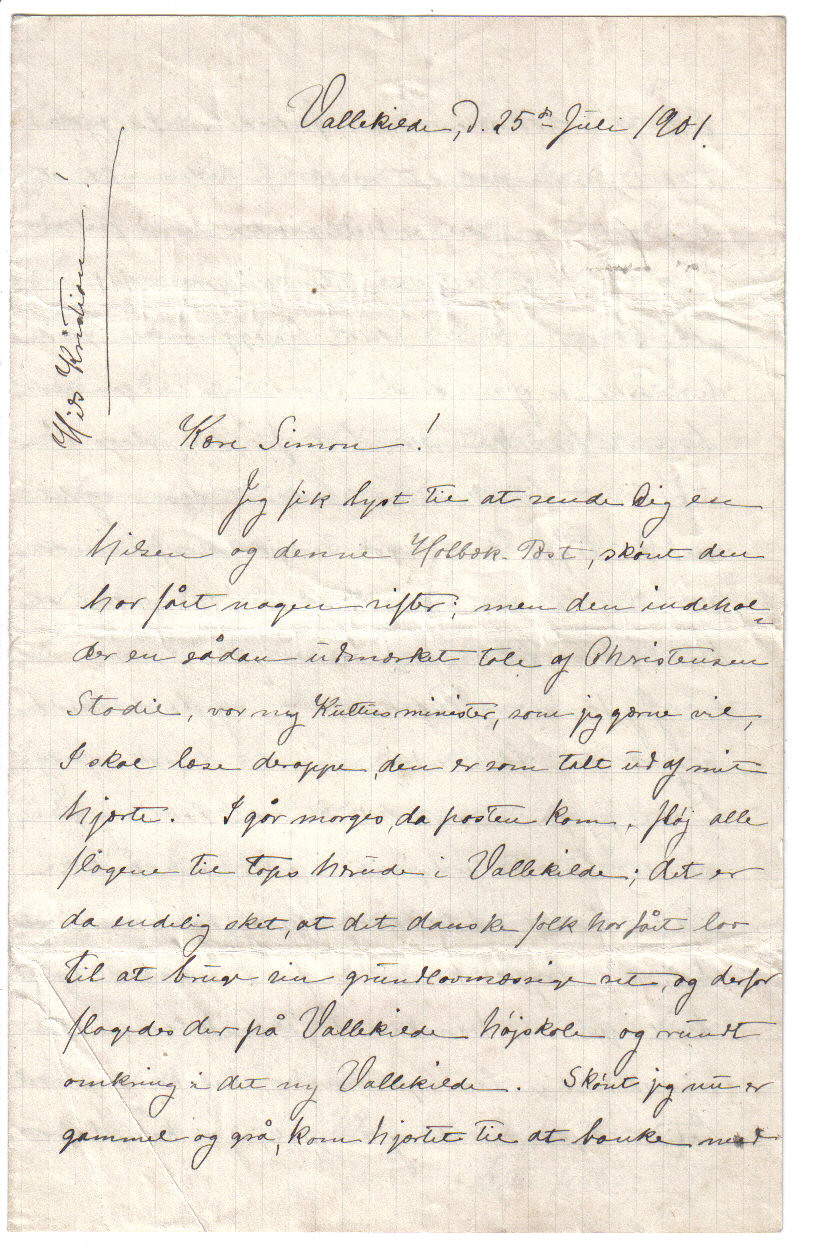 Vallekilde, d. 25de Juli 1901.
Hils Kristian!
Kære Simon!
Jeg fik lyst til at sende Dig en
hilsen og denne Holbæk-Post, skønt den
har fået nogen rifter; men den indehol-
der en sådan udmærket tale af Christensen
Stadil, vor ny Kultusminister, som jeg gærne vil,
I skal læse deroppe, den er som talt ud af mit
hjærte. I går morges, da posten kom, fløj alle
flagene til tops herude i Vallekilde; det er
da endelig sket, at det danske folk har fået lov
til at bruge sin grundlovmæssige ret, og derfor
flagedes der på Vallekilde højskole og rundt
omkring i det ny Vallekilde. Skønt jeg nu er
gammel og grå, kom hjærtet til at banke ved